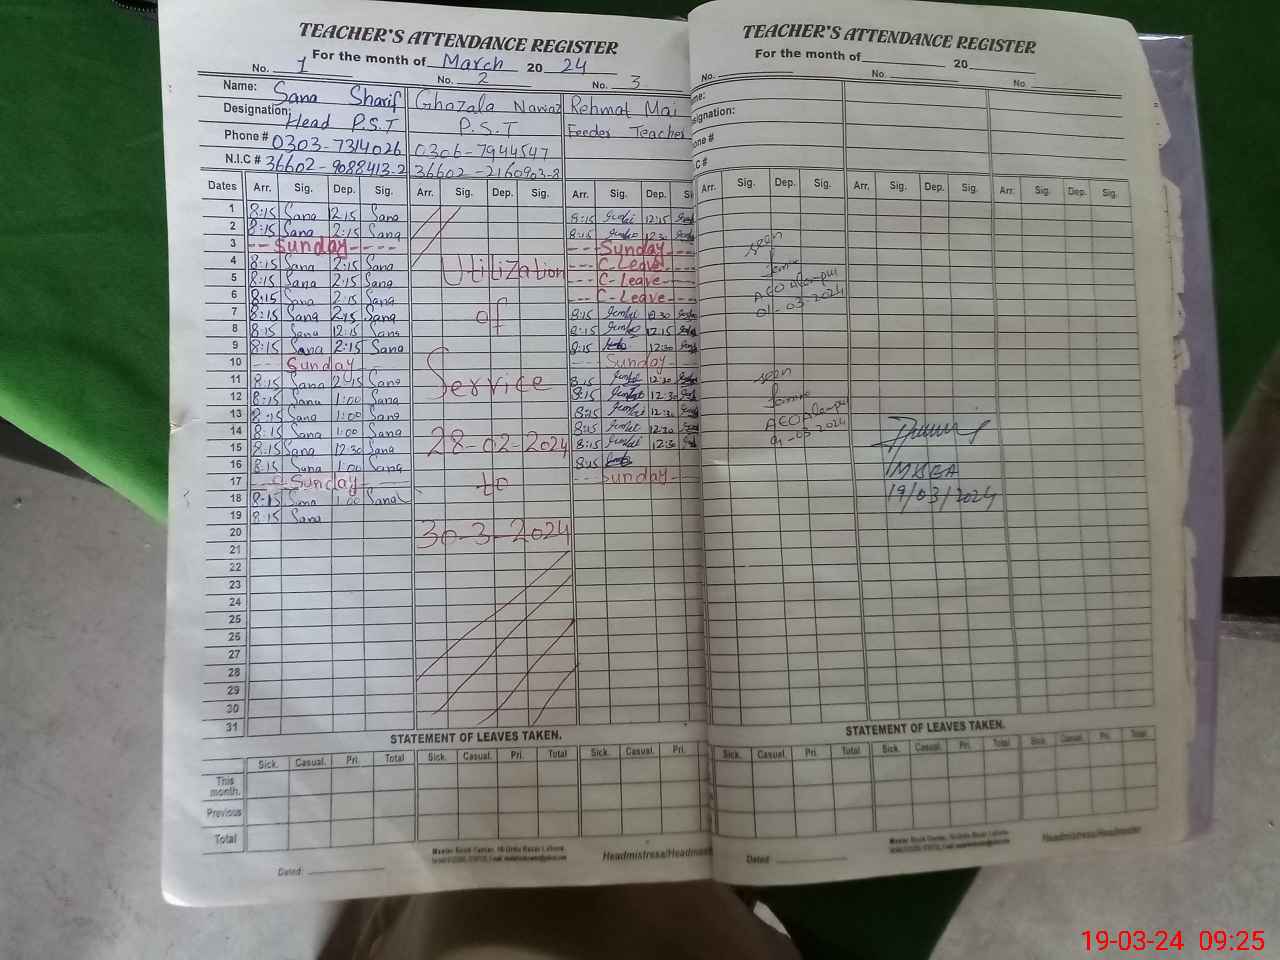 TEACHER'S ATTENDANCE REGISTER
For the month of March 20 24
No. 1 No. 2 No. 3
Name: Sana Sharif Ghazala Nawaz Rehmat Mai
Designation: Head P.S.T P.S.T Feeder Teacher
Phone # 0303-7314026 0306-7944547
N.I.C # 36602-9088413-2 36602-2160903-8
Dates Arr. Sig. Dep. Sig. Arr. Sig. Dep. Sig. Arr. Sig. Dep. Sig.
1 8:15 Sana 2:15 Sana 8:15 12:15
2 8:15 Sana 2:15 Sana 8:15 12:30
3 Sunday Sunday
4 8:15 Sana 2:15 Sana Utilization C-Leave
5 8:15 Sana 2:15 Sana C-Leave
6 8:15 Sana 2:15 Sana C-Leave
7 8:15 Sana 2:15 Sana of 8:15
8 8:15 Sana 12:15 Sana 8:15 12:15
9 8:15 Sana 2:15 Sana 8:15 12:30
10 Sunday Sunday
11 8:15 Sana 2:15 Sana Service 8:15 12:30
12 8:15 Sana 1:00 Sana 8:15 12:30
13 8:15 Sana 1:00 Sana 8:15 12:30
14 8:15 Sana 1:00 Sana 28-02-2024 8:15 12:30
15 8:15 Sana 12:30 Sana 8:15 12:30
16 8:15 Sana 1:00 Sana 8:15
17 Sunday to Sunday
18 8:15 Sana 1:00 Sana
19 8:15 Sana
20 30-3-2024
21
22
23
24
25
26
27
28
29
30
31
STATEMENT OF LEAVES TAKEN.
Sick. Casual. Pri. Total Sick. Casual. Pri. Total Sick. Casual. Pri.
This month.
Previous
Total
Master Book Center, 16-Urdu Bazar Lahore.
Dated: Headmistress/Headmas
TEACHER'S ATTENDANCE REGISTER
For the month of 20
No. No. No
me:
signation:
one #
C #
Arr. Sig. Dep. Sig. Arr. Sig. Dep. Sig. Arr. Sig. Dep. Sig.
seen
01-03-2024
seen
19/03/2024
STATEMENT OF LEAVES TAKEN.
Sick. Casual. Pri. Total Sick. Casual. Pri. Total Sick. Casual. Pri. Total
Master Book Center, 16-Urdu Bazar Lahore.
Dated: Headmistress/Headmaster
19-03-24 09:25